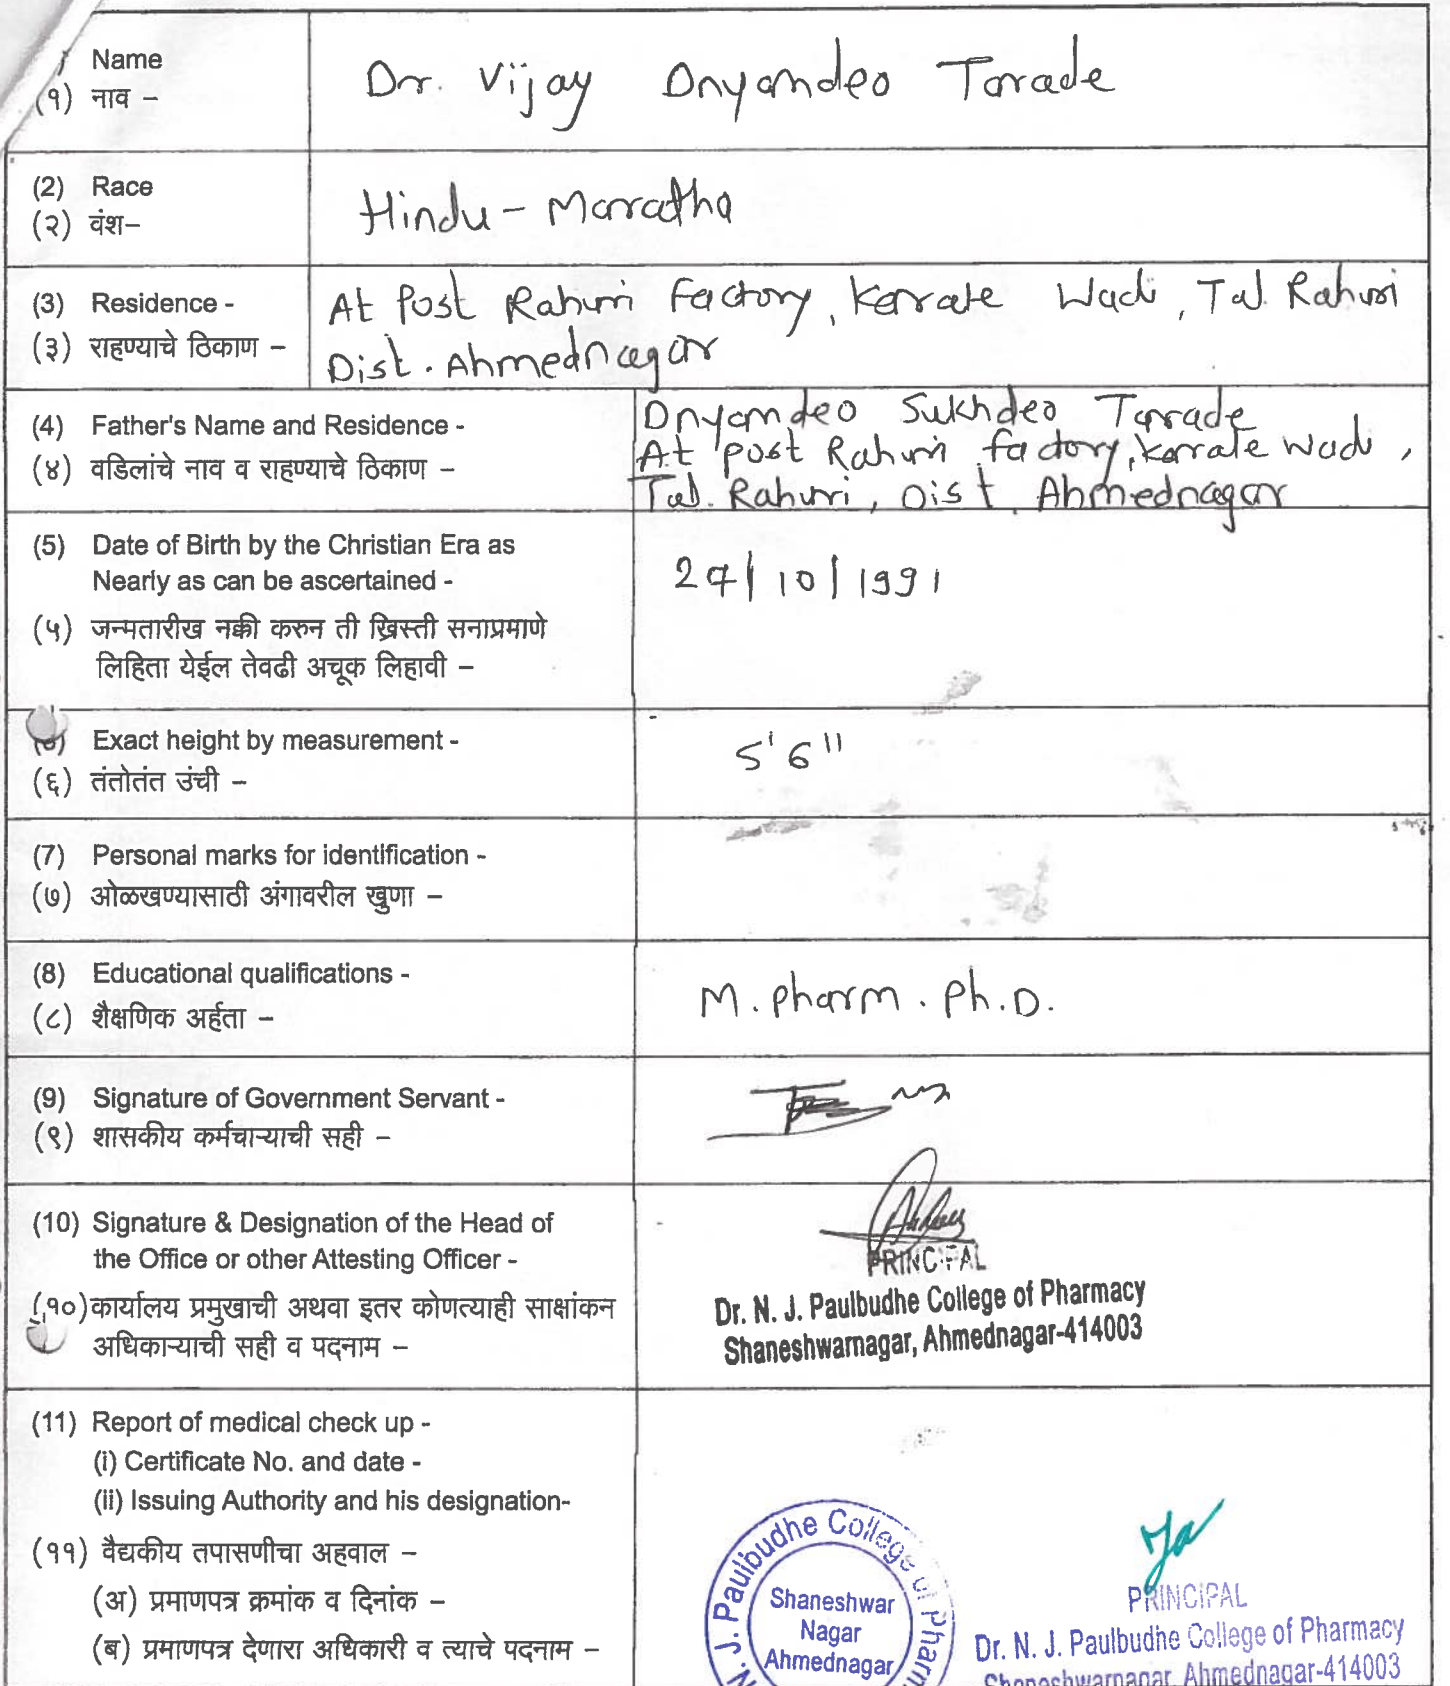 Name
(१) नाव –
Dr. Vijay Dnyandeo Tarade
(2) Race
(२) वंश–
Hindu - Maratha
(3) Residence -
(३) राहण्याचे ठिकाण –
At Post Rahuri Factory, Karale Wadi, Tal. Rahuri
Dist. Ahmednagar
(4) Father's Name and Residence -
(४) वडिलांचे नाव व राहण्याचे ठिकाण –
Dnyandeo Sukhdeo Tarade
At post Rahuri factory, Karale Wadi,
Tal. Rahuri, Dist. Ahmednagar
(5) Date of Birth by the Christian Era as
Nearly as can be ascertained -
(५) जन्मतारीख नक्की करुन ती ख्रिस्ती सनाप्रमाणे
लिहिता येईल तेवढी अचूक लिहावी –
/10/1991
Exact height by measurement -
(६) तंतोतंत उंची –
5'6"
(7) Personal marks for identification -
(७) ओळखण्यासाठी अंगावरील खुणा –
(8) Educational qualifications -
(८) शैक्षणिक अर्हता –
M. Pharm. Ph.D.
(9) Signature of Government Servant -
(९) शासकीय कर्मचाऱ्याची सही –
(10) Signature & Designation of the Head of
the Office or other Attesting Officer -
(१०) कार्यालय प्रमुखाची अथवा इतर कोणत्याही साक्षांकन
अधिकाऱ्याची सही व पदनाम –
PRINCIPAL
Dr. N. J. Paulbudhe College of Pharmacy
Shaneshwarnagar, Ahmednagar-414003
(11) Report of medical check up -
(i) Certificate No. and date -
(ii) Issuing Authority and his designation-
(११) वैद्यकीय तपासणीचा अहवाल –
(अ) प्रमाणपत्र क्रमांक व दिनांक –
(ब) प्रमाणपत्र देणारा अधिकारी व त्याचे पदनाम –
N. J. Paulbudhe College of Pharm
Shaneshwar
Nagar
Ahmednagar
PRINCIPAL
Dr. N. J. Paulbudhe College of Pharmacy
Shaneshwarnagar, Ahmednagar-414003